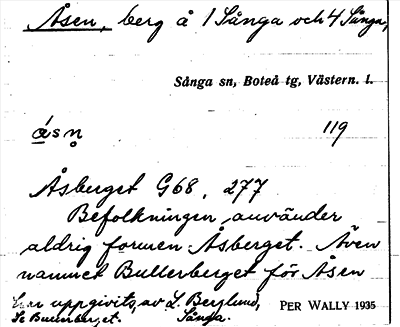 Åsen, berg å 1 Sånga och 4 Sånga,
Sånga sn, Boteå tg, Västern. l.
ásn̥ 119
Åsberget G68, 277
Befolkningen använder
aldrig formen Åsberget. Även
namnet Bullerberget för Åsen
har uppgivits av L. Berglund,
Se Bullerberget. Sånga. PER WALLY 1935